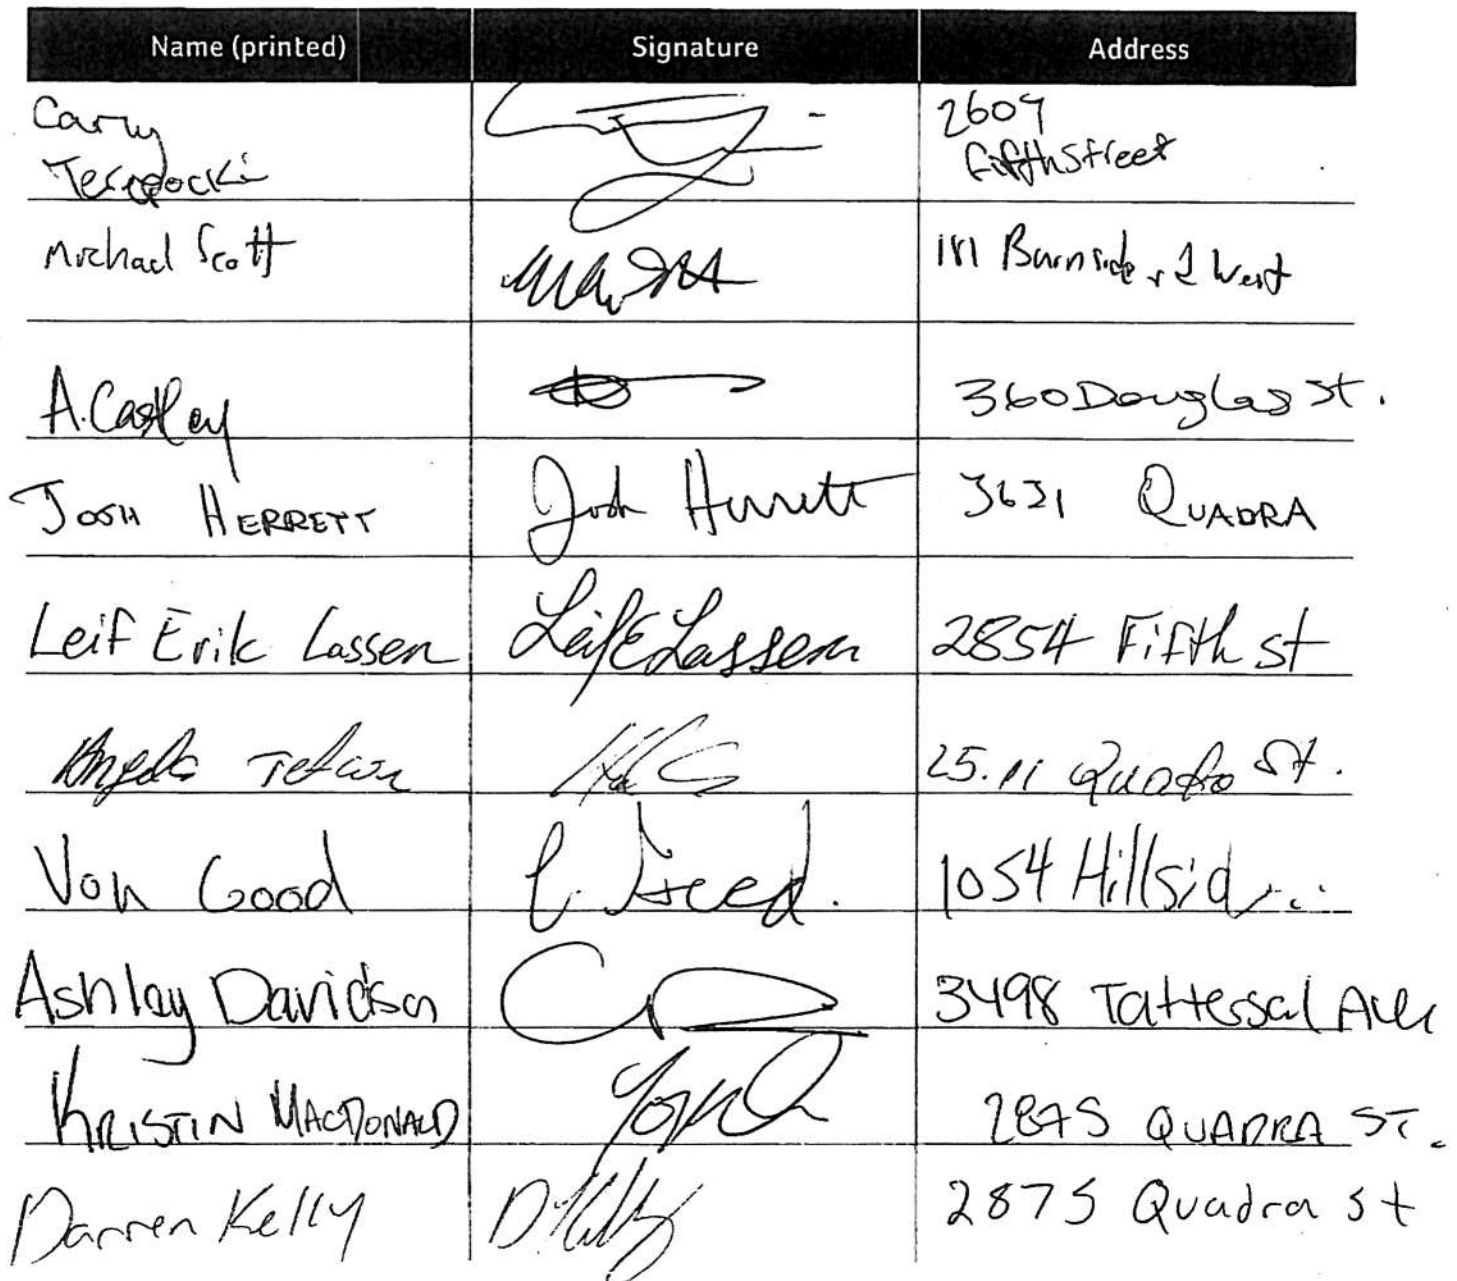 Name (printed) Signature Address
Cary 2607
Fifth Street
Michael Scott 111 Burnside rd West
A. Castley 360 Douglas St.
JOSH HERRETT Josh Herrett 3631 QUADRA
Leif Erik Lassen Leif E Lassen 2854 Fifth st
Angela 25.11 Quadra St.
Von Good 1054 Hillsid
Ashley Davidson 3498 Tattersal Ave
KRISTIN MACDONALD 2875 QUADRA ST.
Darren Kelly D. Kelly 2875 Quadra st